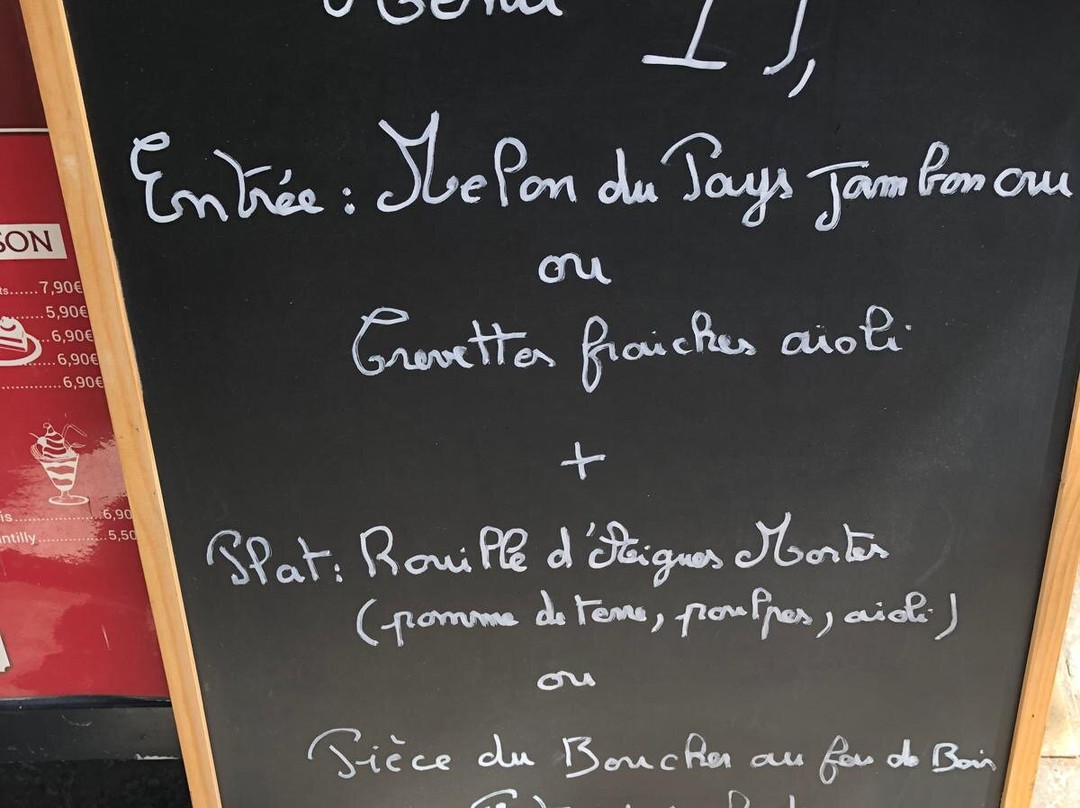 Menu
Entrée : Melon du Pays Jambon cru
ou
Crevettes fraiches aïoli
+
Plat : Rouille d'Aigues Mortes
(pomme de terre, poulpes, aioli)
ou
Pièce du Boucher au feu de Bois
SON
7,90€
5,90€
6,90€
6,90€
6,90€
6,90
ntilly 5,50